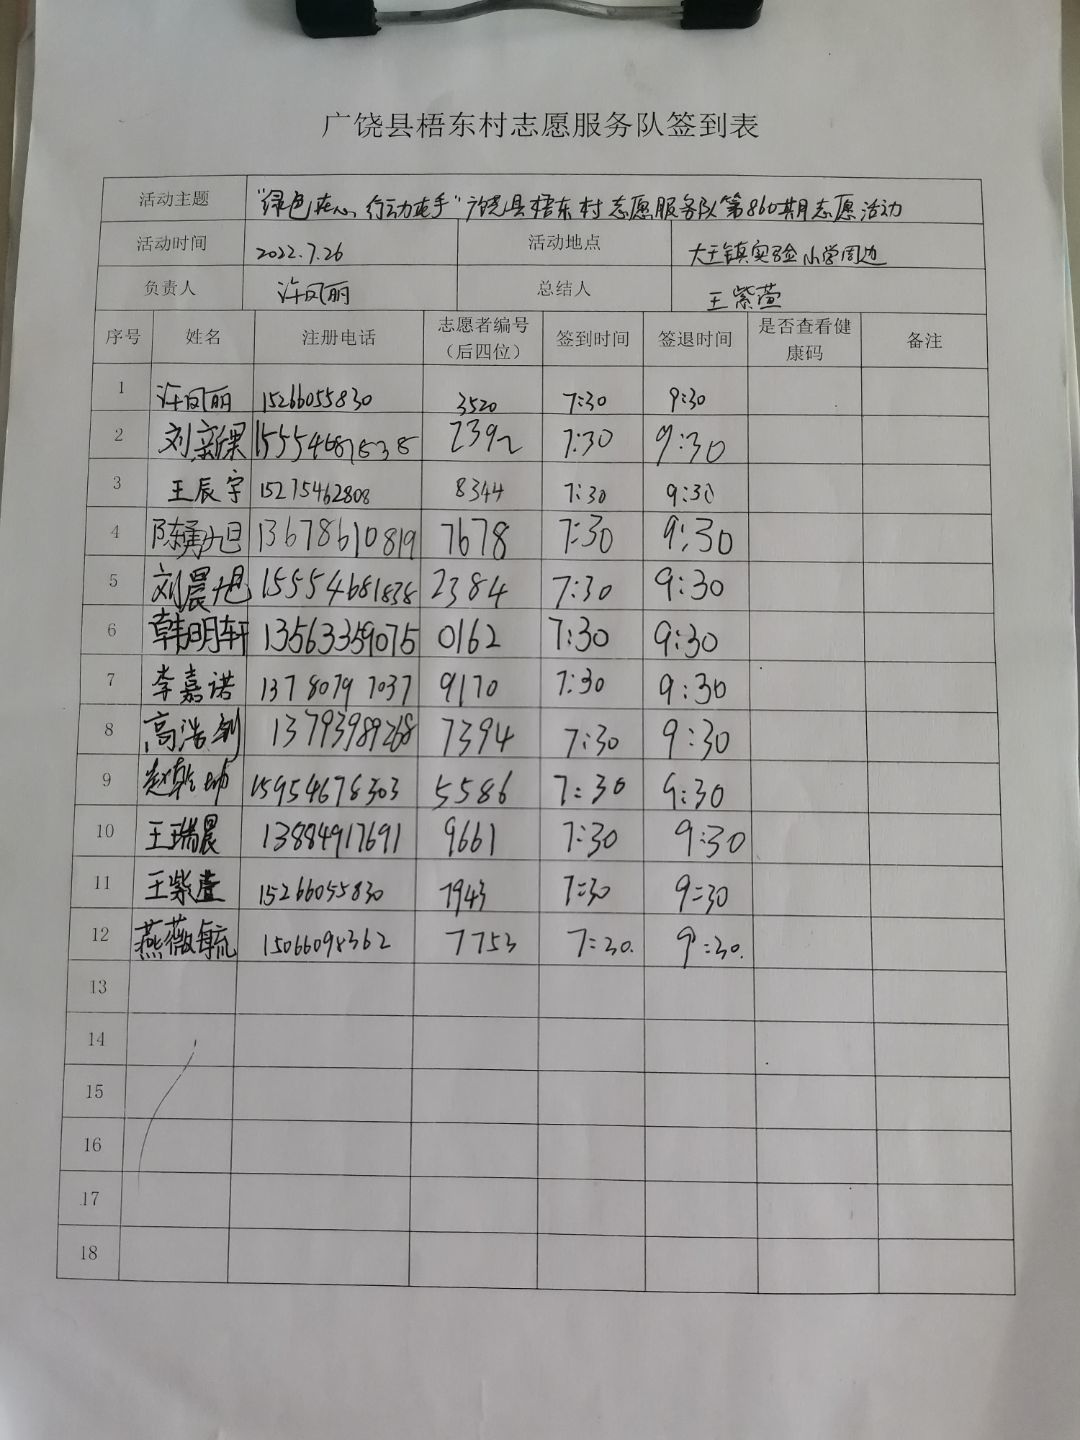 广饶县梧东村志愿服务队签到表
活动主题 "绿色在心,行动在手"广饶县梧东村志愿服务队第860期志愿活动
活动时间 2022.7.26 活动地点 大王镇实验小学周边
负责人 许凤丽 总结人 王紫萱
序号 姓名 注册电话 志愿者编号（后四位） 签到时间 签退时间 是否查看健康码 备注
1 许凤丽 15266055830 3520 7:30 9:30
2 刘新课 15554687838 2392 7:30 9:30
3 王辰宇 15275462808 8344 7:30 9:30
4 陈勇旭 13678610819 7678 7:30 9:30
5 刘晨旭 15554681838 2384 7:30 9:30
6 韩明轩 13563359075 0162 7:30 9:30
7 李嘉诺 13780797037 9170 7:30 9:30
8 高浩 13793989268 7394 7:30 9:30
9 赵乾坤 15954678303 5586 7:30 9:30
10 王瑞晨 13884917691 9661 7:30 9:30
11 王紫萱 15266055830 7943 7:30 9:30
12 燕薇毓 15066098362 7753 7:30. 9:30.
13
14
15
16
17
18